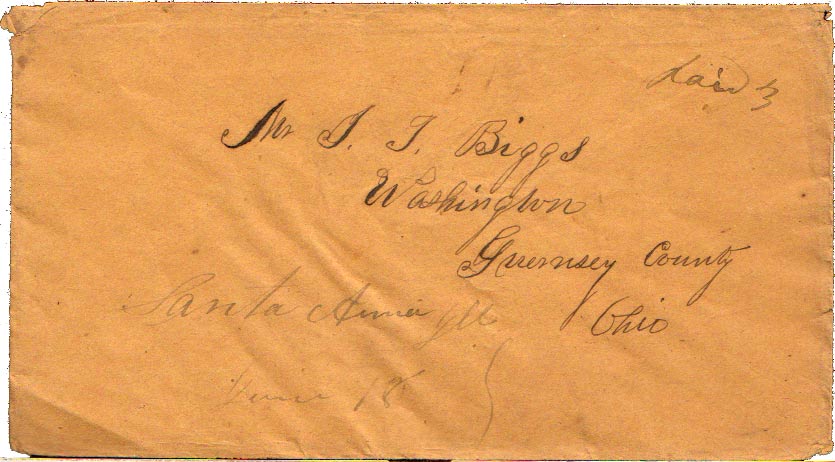 Paid 3
Mr I. I. Biggs
Washington
Guernsey County
Ohio
Santa Anna Ill
June 18